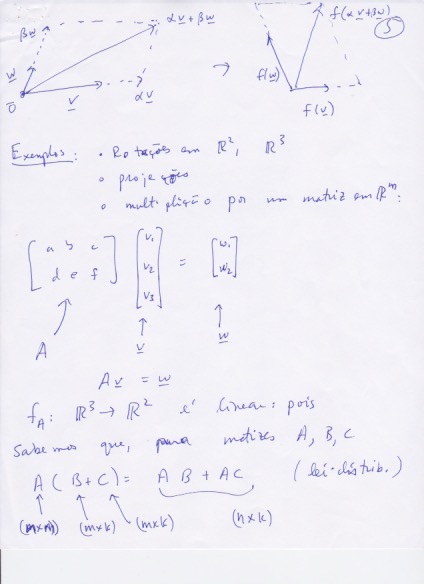 βw αv + βw f(αv+βw) 5
w f(w)
0 v αv → f(v)
Exemplos: • Rotações em ℝ², ℝ³
o projeções
o multiplicação por um matriz em ℝᵐ:
[ a b c ] [ v₁ ] [ w₁ ]
[ d e f ] [ v₂ ] = [ w₂ ]
[ v₃ ]
A v w
A v = w
f_A: ℝ³ → ℝ² é linear: pois
Sabemos que, para matrizes A, B, C
A ( B + C ) = A B + A C (lei-distrib.)
(m×k) (m×k) (n×k)